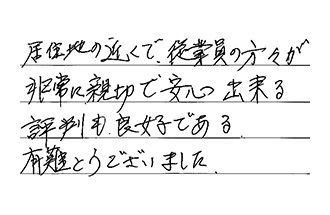 居住地の近くで、従業員の方々が
非常に親切で安心出来る
評判も良好である。
有難とうございました。